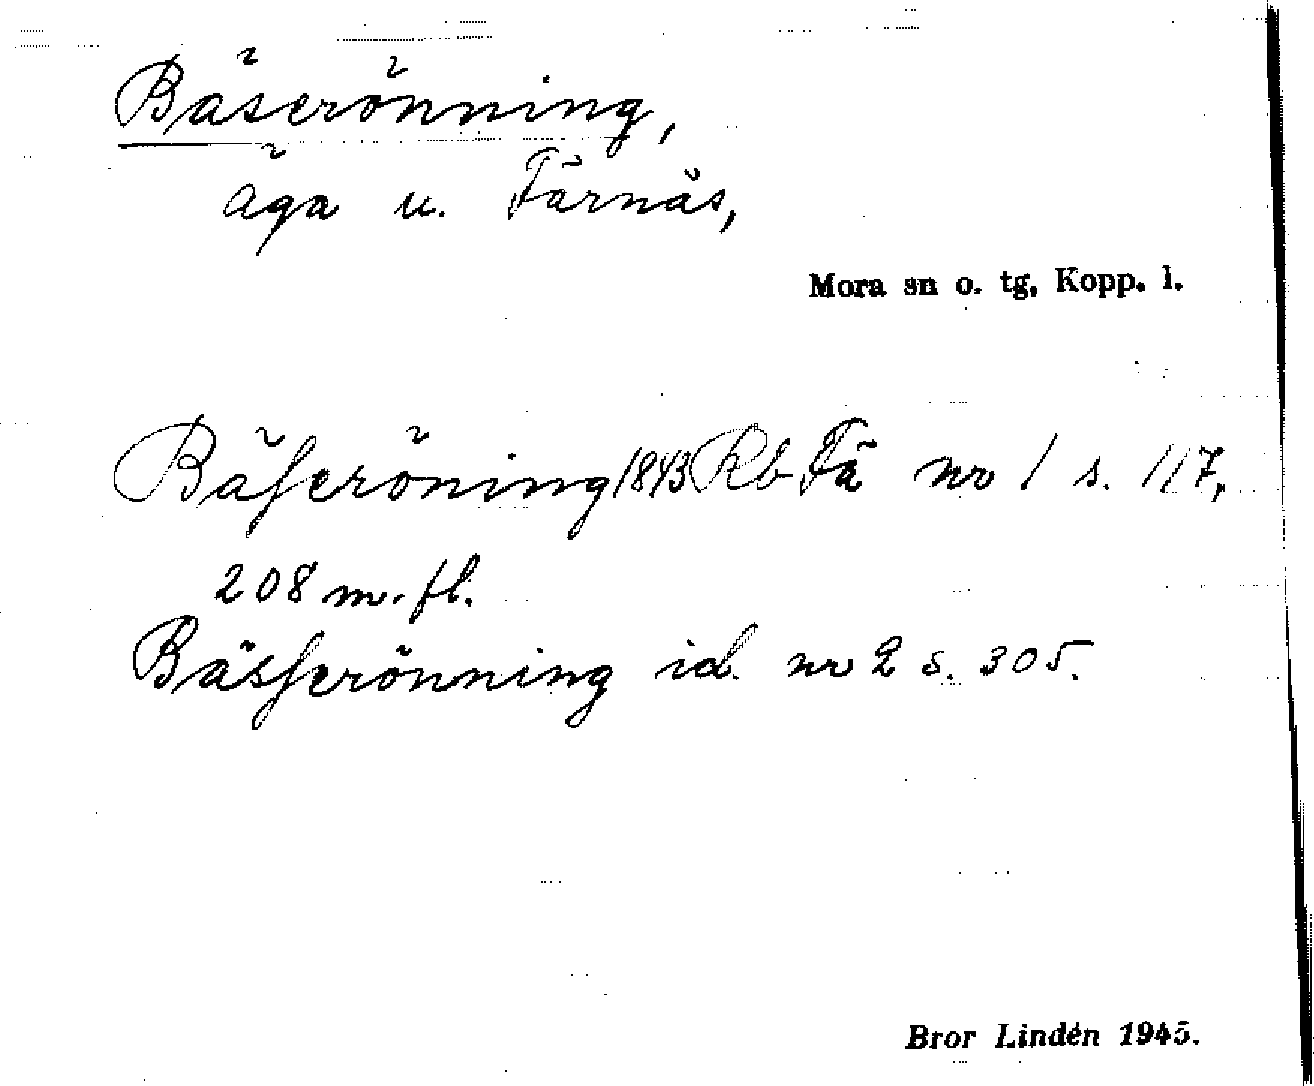 Bäserönning,
äga u. Färnäs,
Mora sn o. tg, Kopp. l.
Bäſeröning 1843 Rb Fä nr 1 s. 117,
208 m. fl.
Bäsſerönning id. nr 2 s. 305.
Bror Lindén 1945.